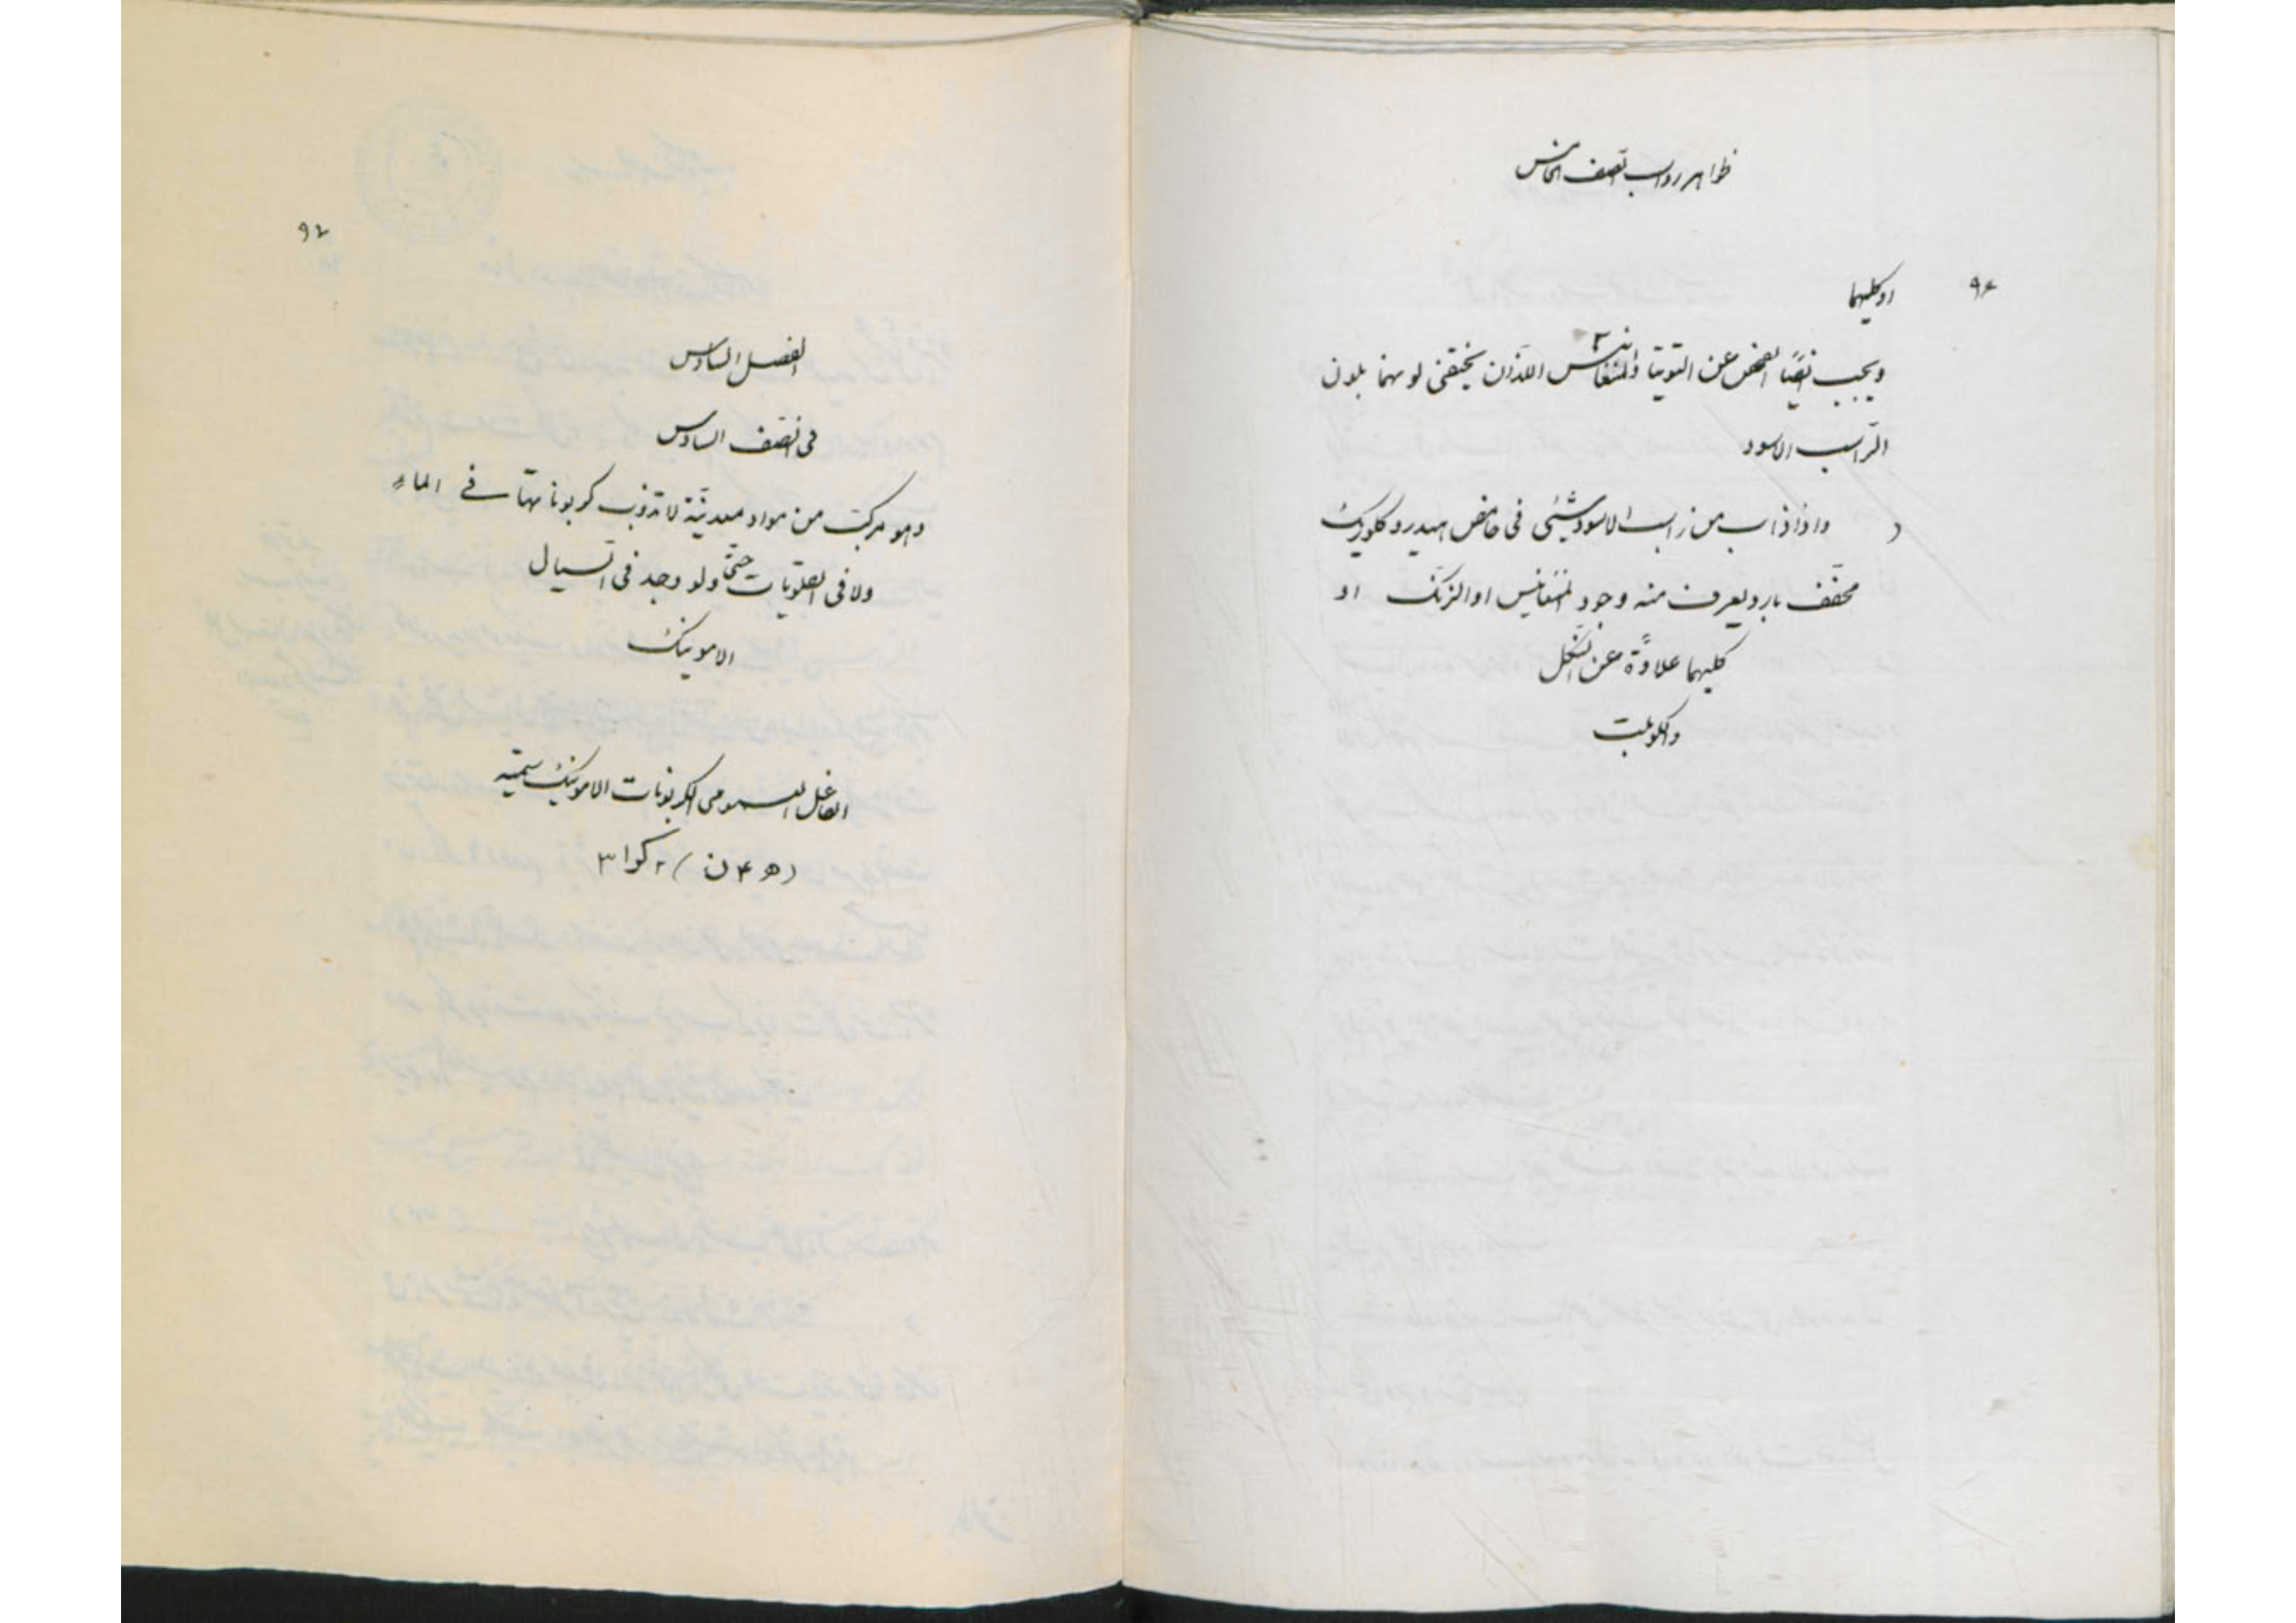 ظواهر رواسب الصف الخامس
٩٤
او كليهما
ويجب ايضًا الفحص عن التوتيا والمنغانيس اللذان يختفى لونهما بلون
الراسب الاسود
واذا ذاب من راسب الاسود شئى فى حامض هيدروكلوريك
مخفف بارد يعرف منه وجود المنغانيس او الزنك او
كليهما علاوة عن النكل
والكوبلت
٩٦
الفصل السادس
فى الصف السادس
وهو مركب من مواد معدنية لا تذوب كربوناتها فى الماء
ولا فى القلويات حتى ولو وجد فى السيال
الامونيك
الفاعل العمومى الكربونات الامونيك سمته
(ه ۴ ن) ٢ كوا ٣